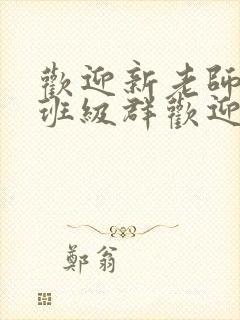 歡迎新老師
班級群歡迎
鄭翁